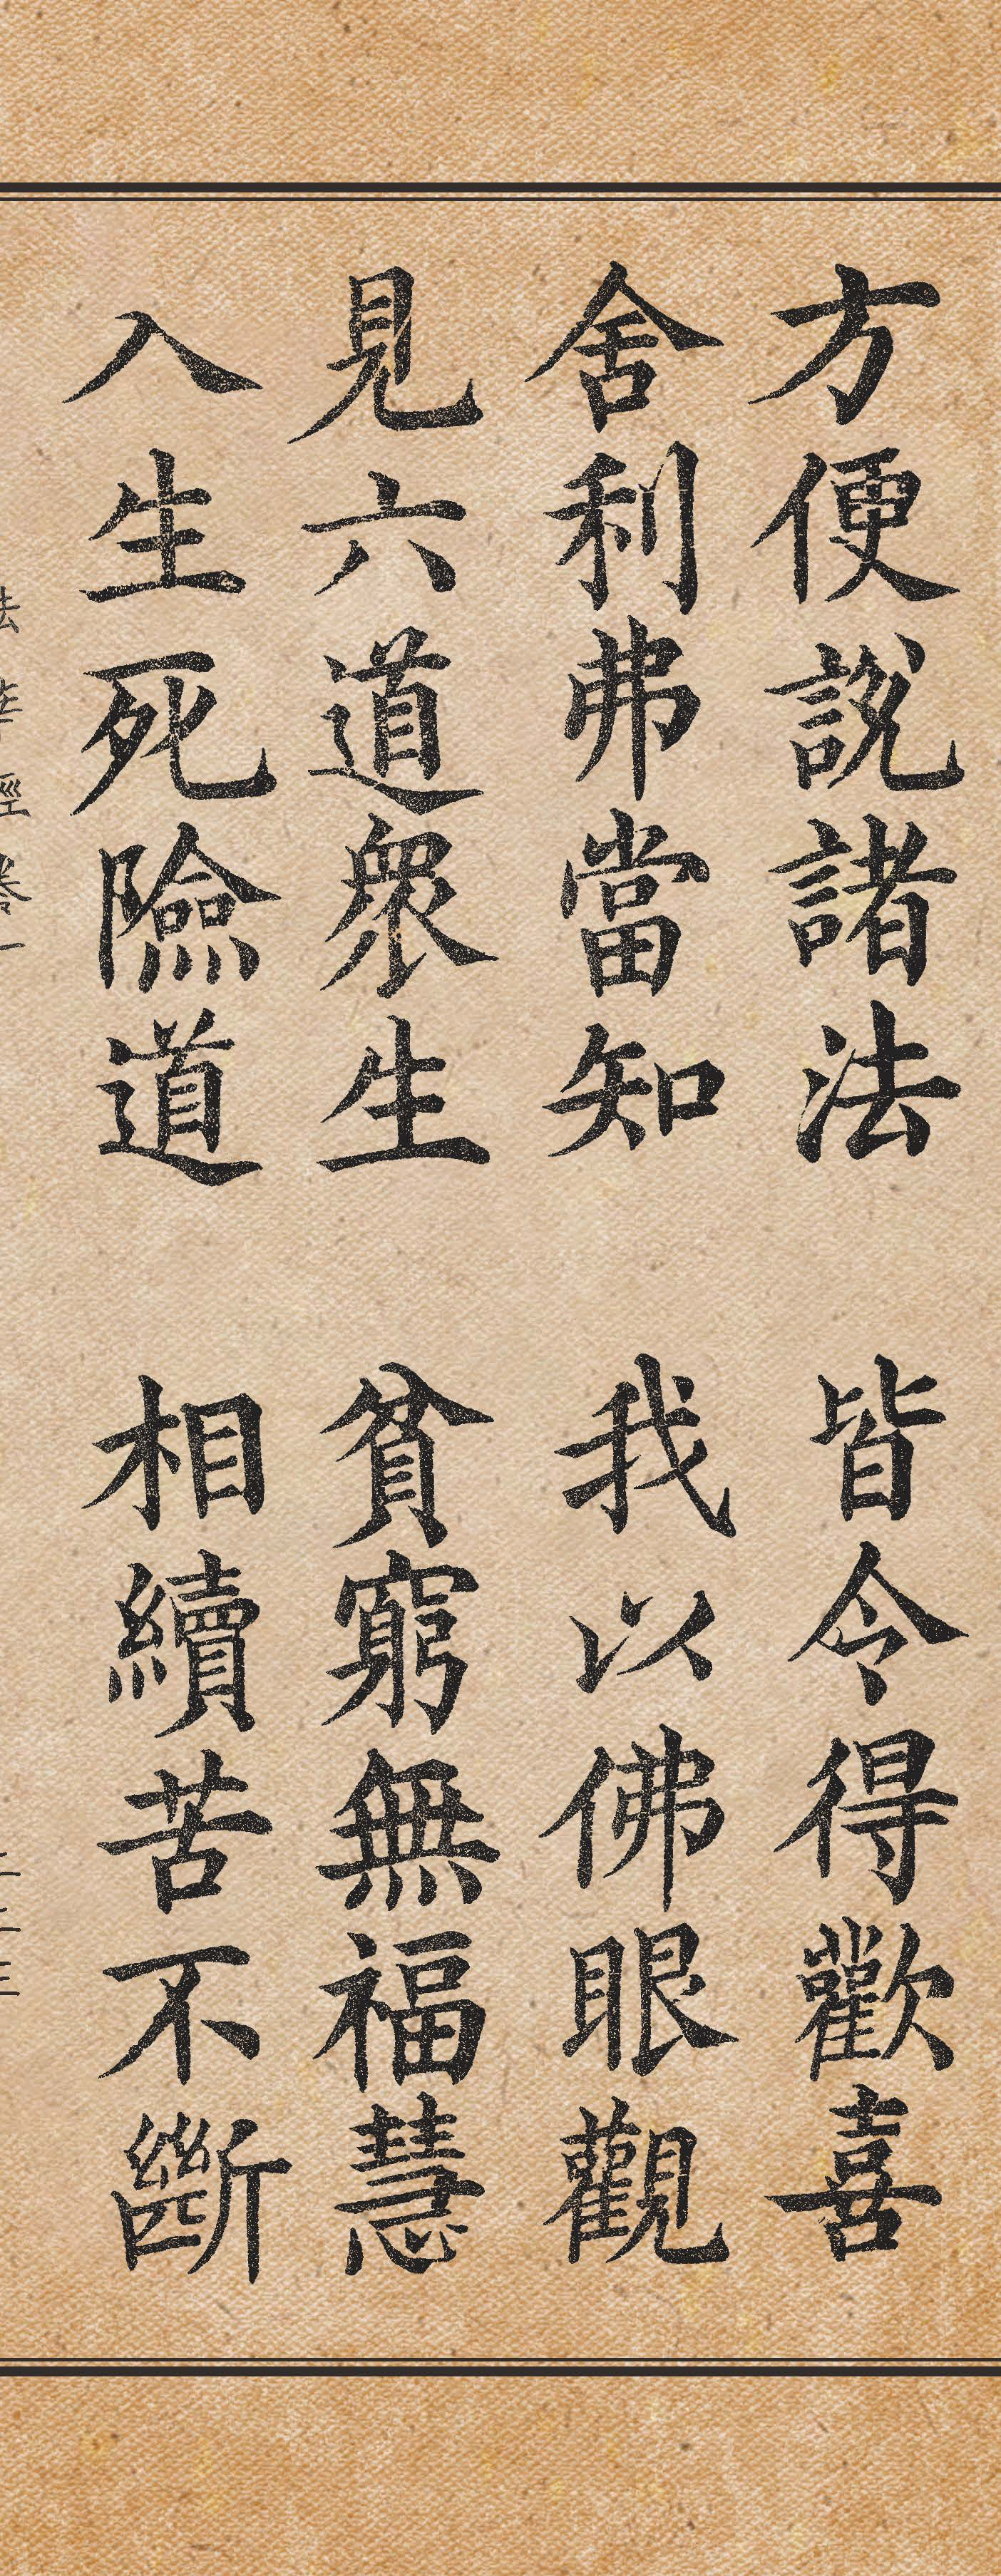 方便說諸法 皆令得歡喜
舍利弗當知 我以佛眼觀
見六道眾生 貧窮無福慧
入生死險道 相續苦不斷
法華經卷一 二二三